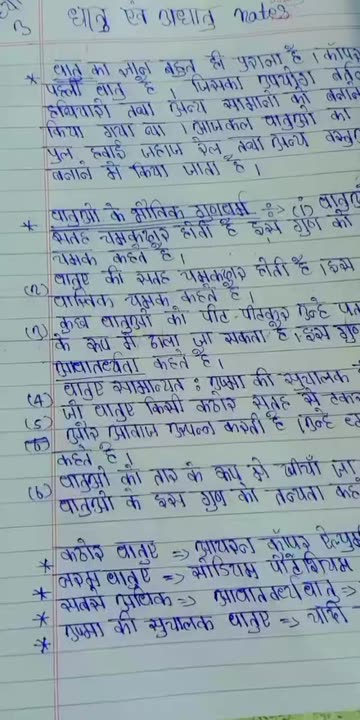 3 धातु एवं अधातु notes
* धातु का ज्ञान बहुत ही पुराना है। कॉपर
पहली धातु है। जिसका उपयोग
हथियारों तथा अन्य सामानों को बनाने
किया गया था। आजकल धातुओं का
पुल हवाई जहाज रेल तथा अन्य वस्तु
बनाने में किया जाता है।
* धातुओं के भौतिक गुणधर्म :- (1) धातुएं
सतह चमकदार होती है इस गुण को
चमक कहते है।
(2) धातुएं की सतह चमकदार होती है। इस
धात्विक चमक कहते है।
(3) कुछ धातुओं को पीट-पीटकर इन्हे पत
के रूप में ढाला जा सकता है। इस गुण
आघातवर्ध्यता कहते है।
(4) धातुएं सामान्यत: ऊष्मा की सुचालक है
(5) जो धातुएं किसी कठोर सतह से टकरा
और आवाज उत्पन्न करती है। इन्हे
कहते है।
(6) धातुओं को तार के रूप में खींचा जा
धातुओं के इस गुण को तन्यता कह
* कठोर धातुएं => आयरन कॉपर ऐल्यु
* नरम धातुएं => सोडियम पोटैशियम
* सबसे अधिक => आघातवर्ध्य धातु =>
* ऊष्मा की सुचालक धातुएं => चाँदी